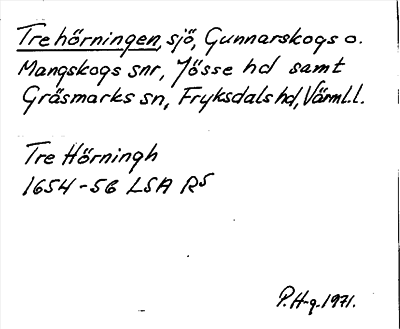 Trehörningen, sjö, Gunnarskogs o.
Mangskogs snr, Jösse hd samt
Gräsmarks sn, Fryksdals hd, Värml.l.
Tre Hörningh
1654-56 LSA R5
P. H-g. 1971.